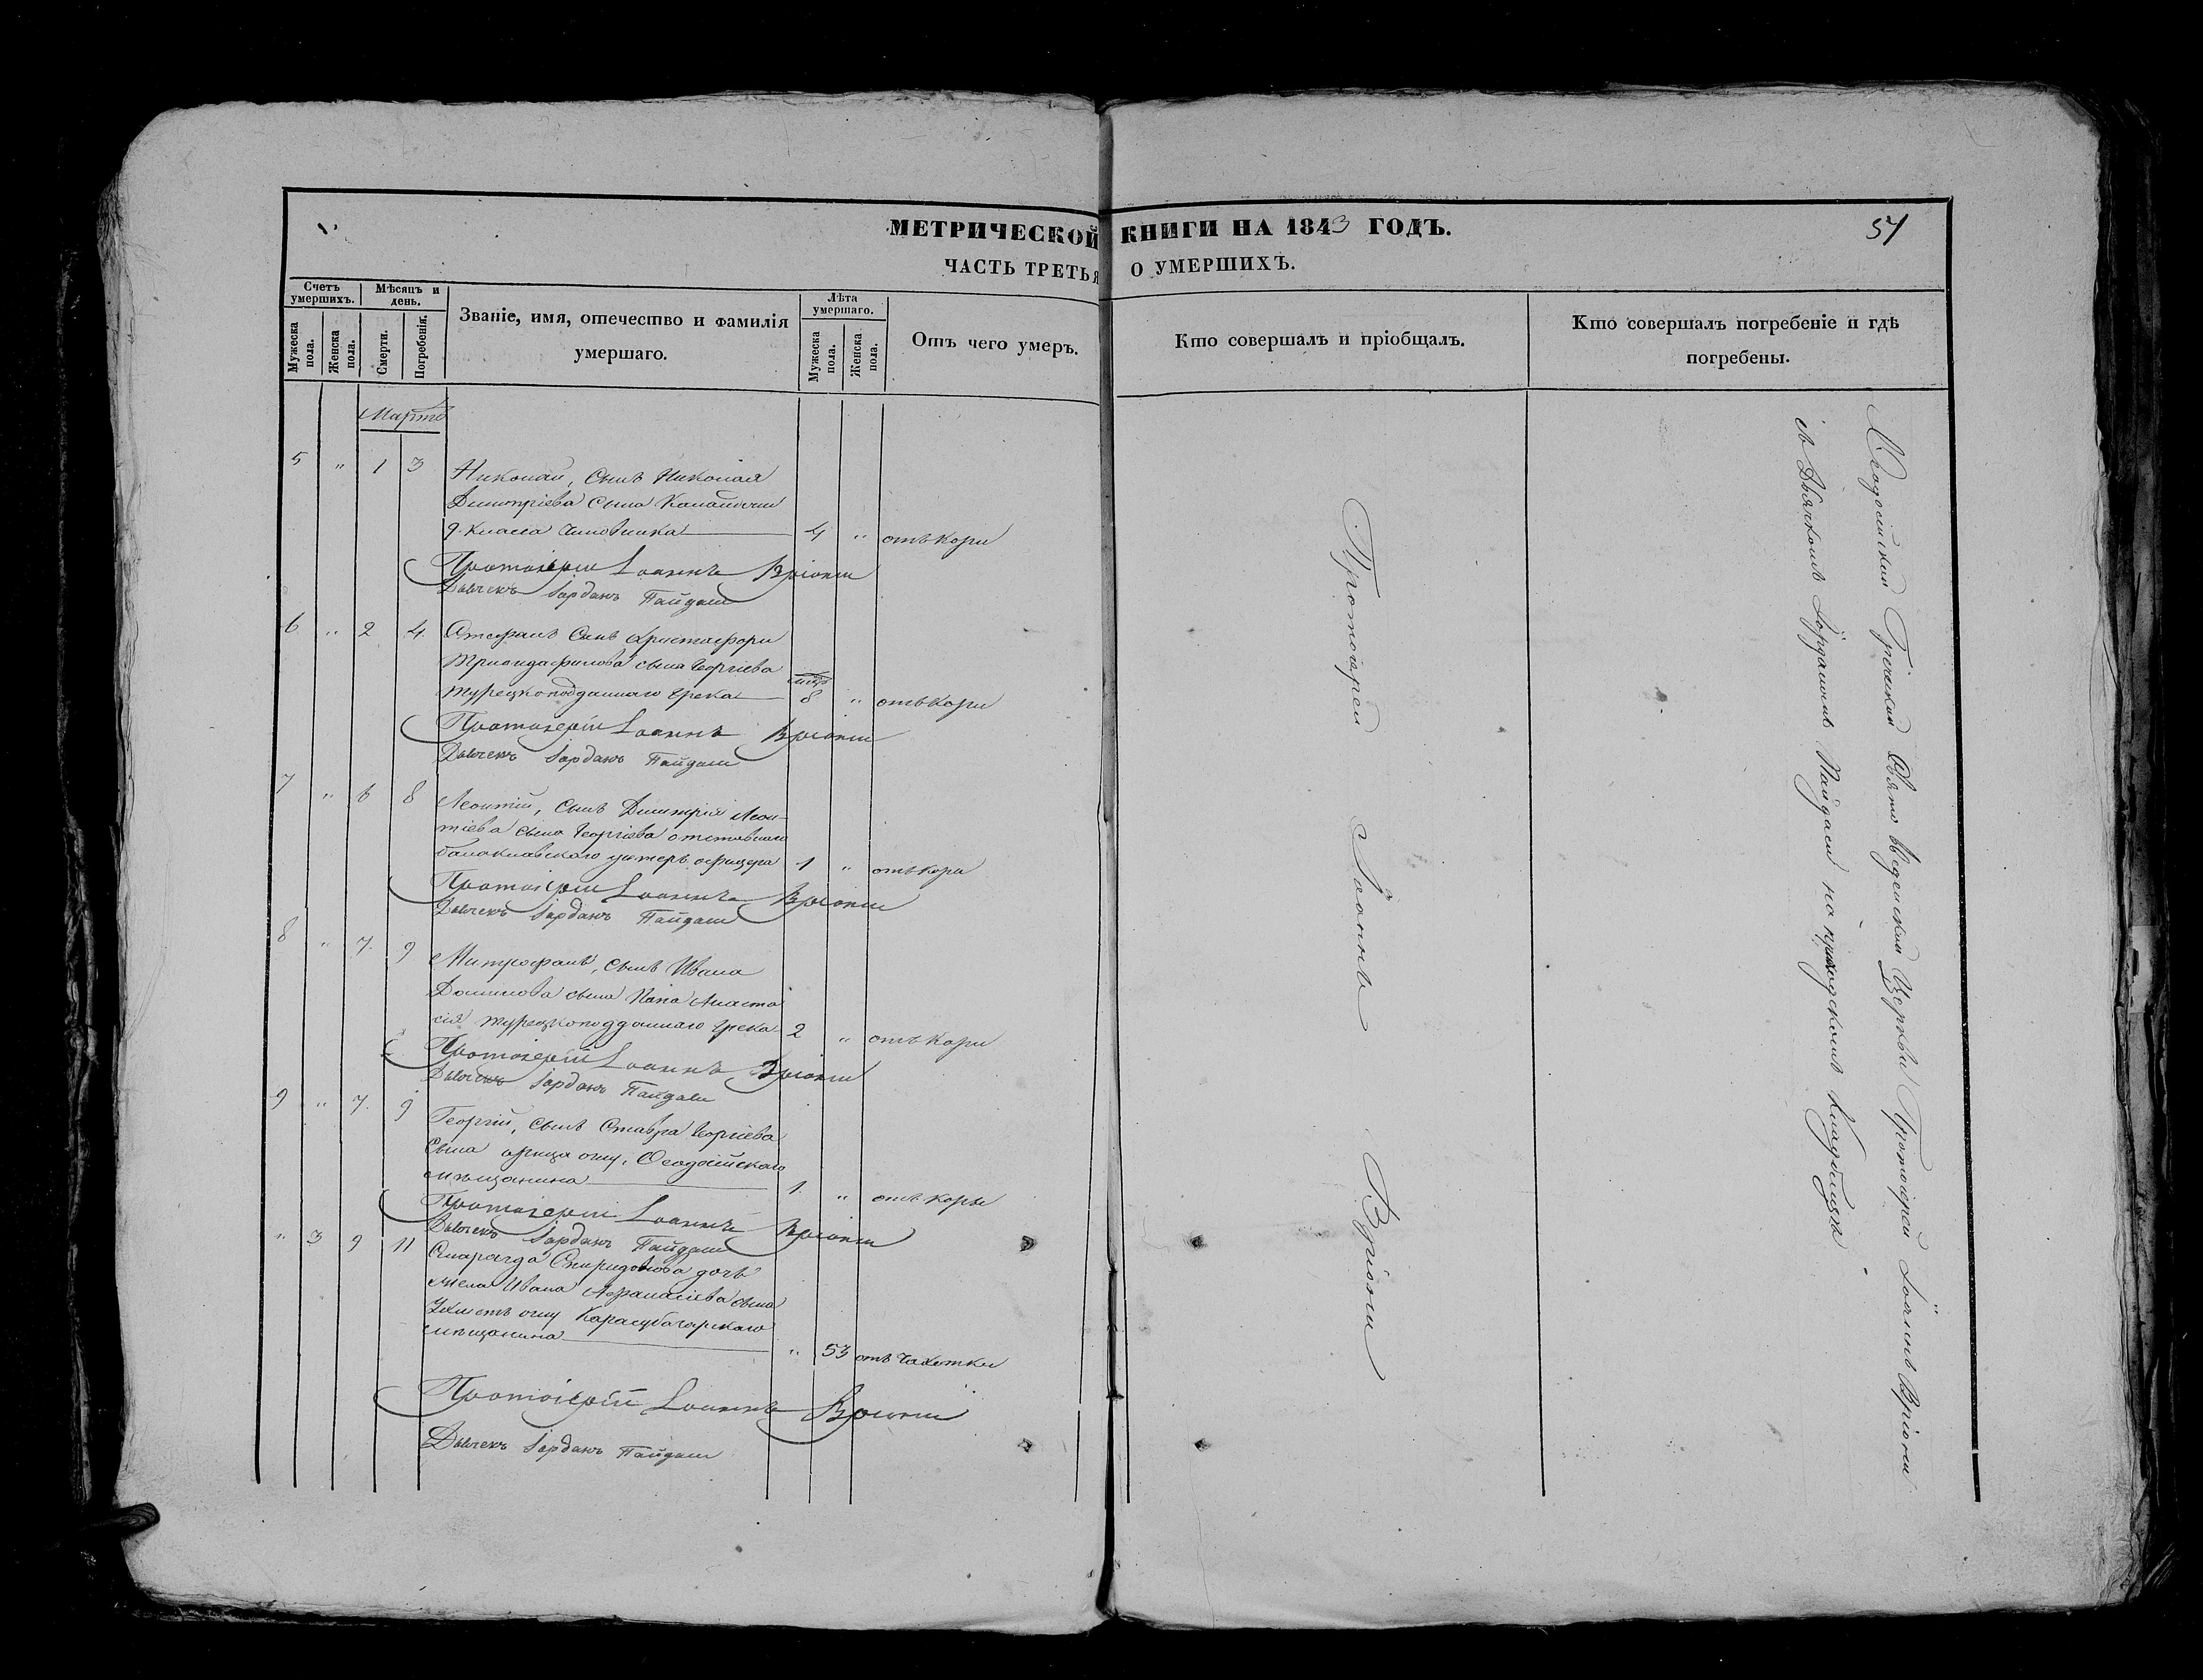 МЕТРИЧЕСКОЙ КНИГИ НА 1843 ГОДЪ.
54
ЧАСТЬ ТРЕТЬЯ О УМЕРШИХЪ.
Счетъ умершихъ.
Мужеска пола.
Женска пола.
Мѣсяцъ и день.
Смерти.
Погребенія.
Званіе, имя, отечество и фамилія
умершаго.
Лѣта умершаго.
Мужеска пола.
Женска пола.
Отъ чего умеръ.
Кто совершалъ и пріобщалъ.
Кто совершалъ погребеніе и гдѣ
погребены.
Мартъ
5 " 1 3 Николай, сынъ Николая
Димитріева сына
9. класса чиновника 4 " отъ кори
Протоіерей Іоаннъ Вріони
Дьячекъ Іорданъ Пайдаси
6 " 2 4. Стефанъ сынъ Христофори
Триандафилова сына Георгіева
мѣсяц
турецкоподданнаго грека 8 " отъ кори
Протоіерей Іоаннъ Вріони
Дьячекъ Іорданъ Пайдаси
7 " 6 8 Леонтій, сынъ Димитрія Леон-
тіева сына Георгіева отставнаго
балаклавского унтеръ офицера 1 " отъ кори
Протоіерей Іоаннъ Вріони
Дьячекъ Іорданъ Пайдаси
8 " 7. 9 Митрофанъ, сынъ Ивана
сына Папа Анаста
сія турецкоподданнаго грека 2 " отъ кори
Протоіерей Іоаннъ Вріони
Дьячекъ Іорданъ Пайдаси
9 " 7. 9 Георгій, сынъ Ставра Георгіева
сына Ѳеодосійскаго
мѣщанина 1. " отъ кори
Протоіерей Іоаннъ Вріони
Дьячекъ Іорданъ Пайдаси
" 3 9 11 Смарагда Спиридонова дочь
жена Ивана Афанасіева сына
Карасубазарскаго
мѣщанина " 53 отъ чахотки
Протоіерей Іоаннъ Вріони
Дьячекъ Іорданъ Пайдаси
Протоіерей Іоаннъ Вріони
Ѳеодосійской Греческой Свято Введенской Церкви Протоіерей Іоаннъ Вріони
съ Дьячкомъ Іорданомъ Пайдаси на приходскомъ кладбищѣ